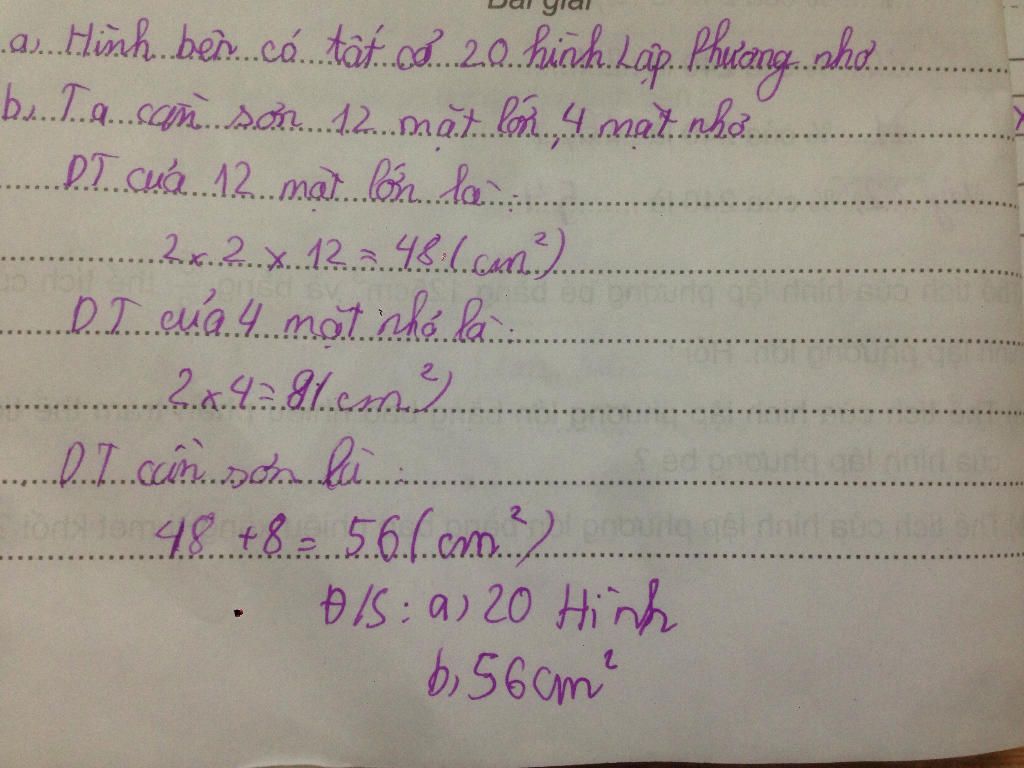 Bài giải
a, Hình bên có tất cả 20 hình Lập Phương nhỏ
b, Ta cần sơn 12 mặt lớn, 4 mặt nhỏ
DT của 12 mặt lớn là:
2 x 2 x 12 = 48 (cm²)
DT của 4 mặt nhỏ là:
2 x 4 = 8 (cm²)
DT cần sơn là :
48 + 8 = 56 (cm²)
Đ/S : a) 20 Hình
b, 56cm²